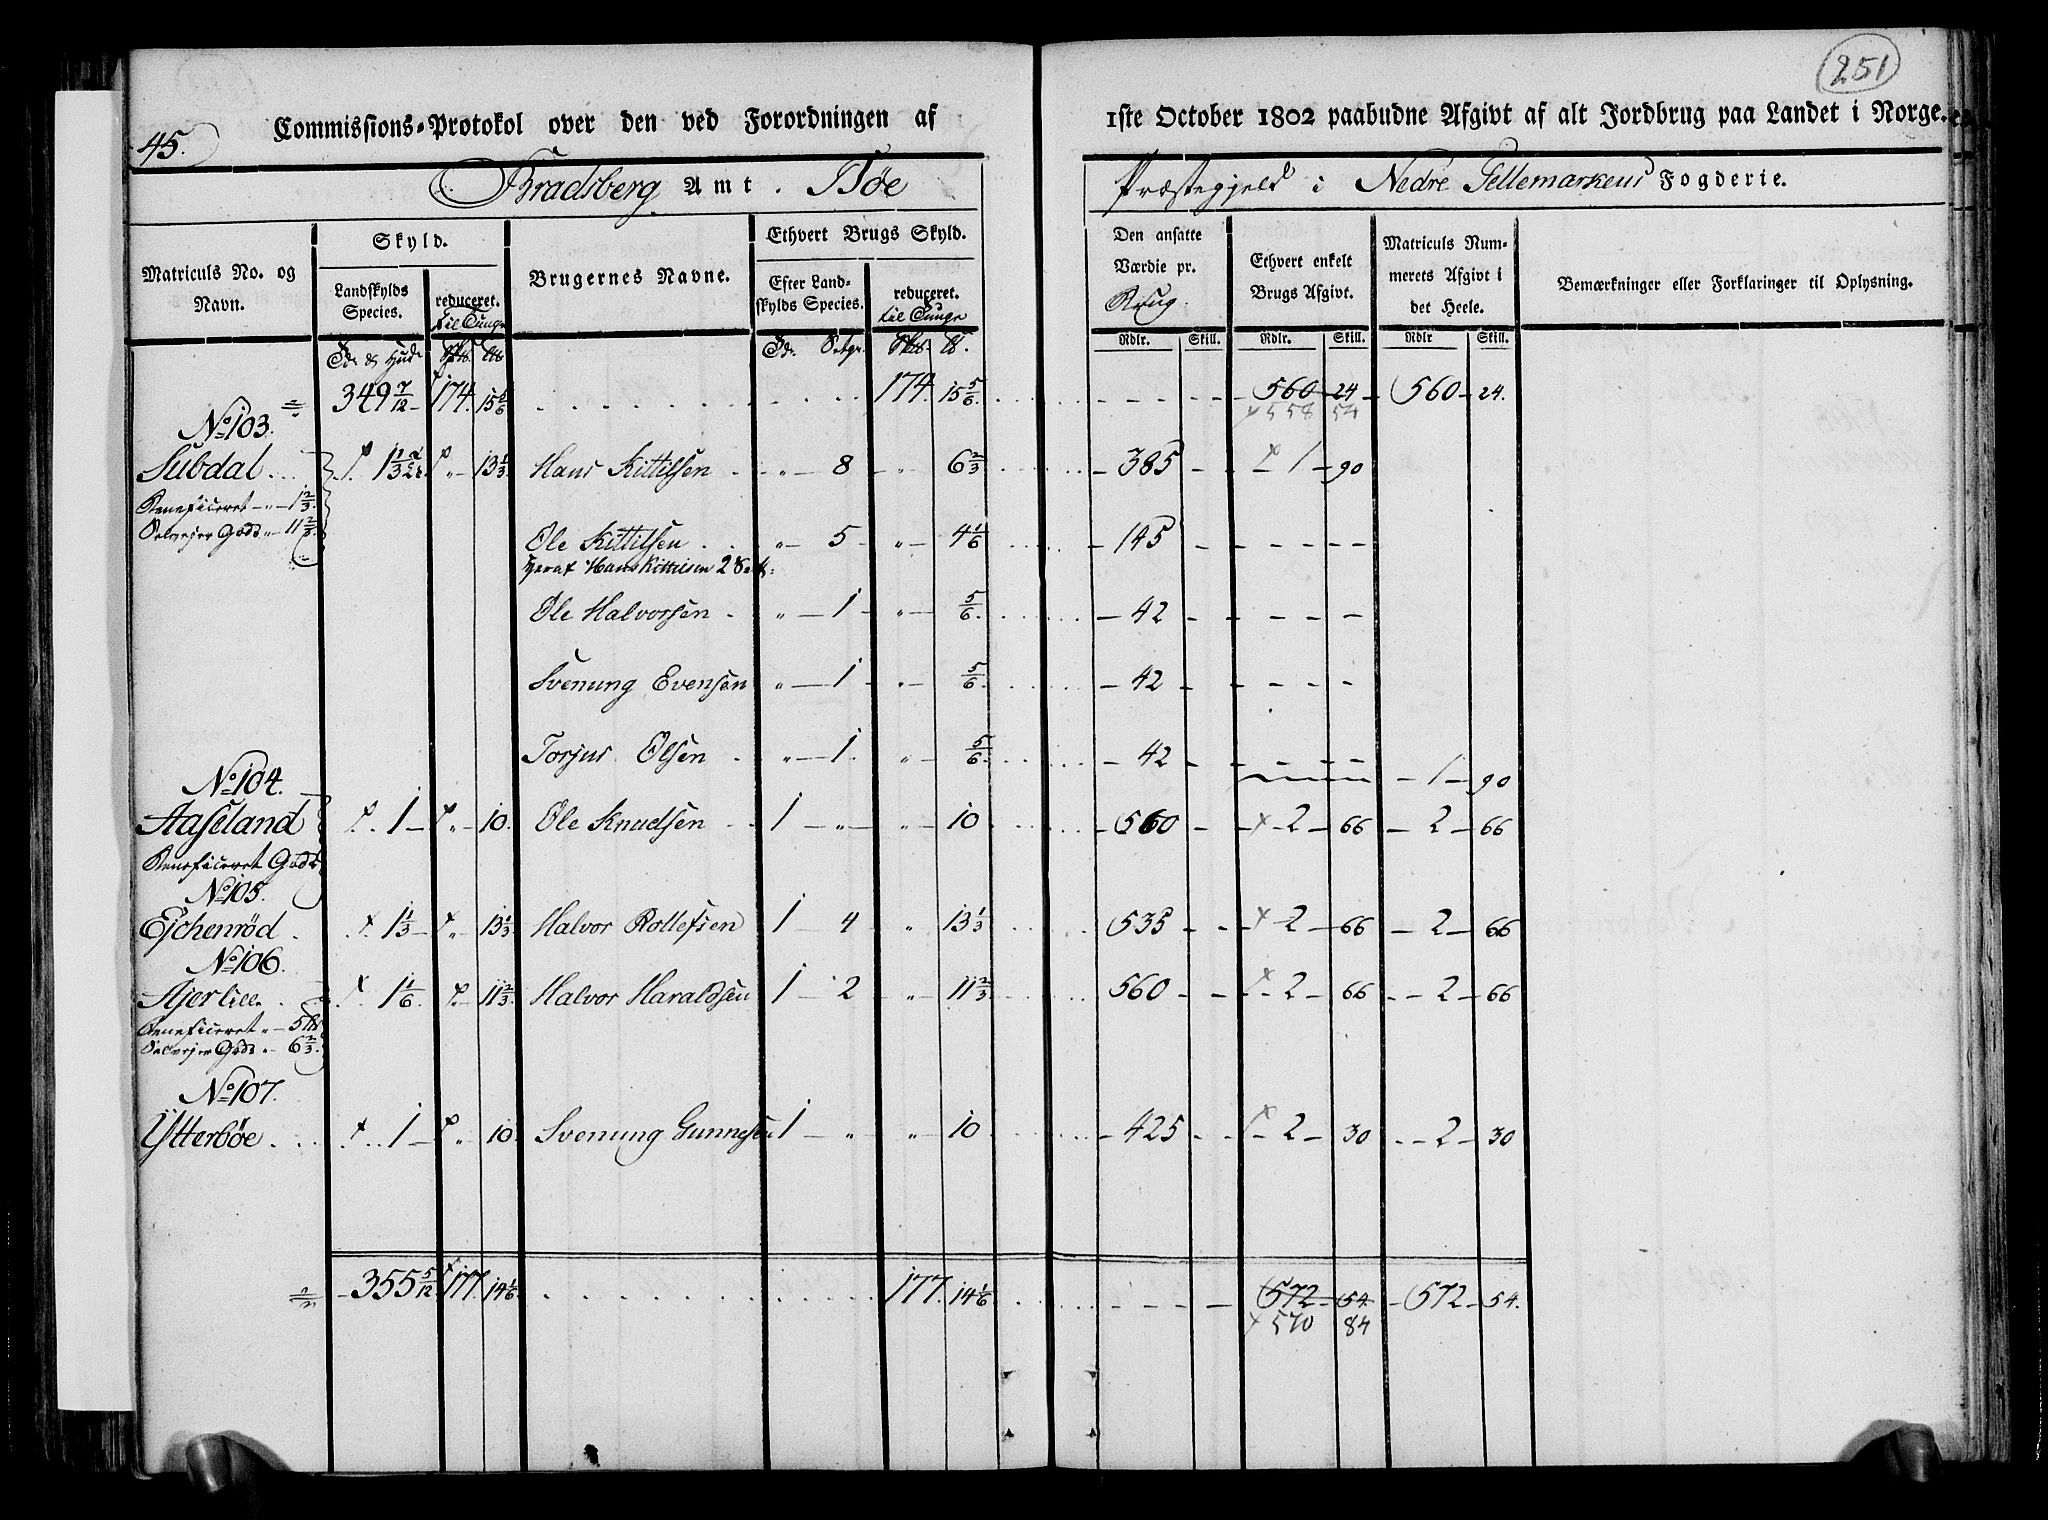 251
45. Commissions-Protokol over den ved Forordningen af 1ste October 1802 paabudne Afgivt af alt Jordbrug paa Landet i Norge.
Bradsberg Amt. Bøe Præstegjeld i Nedre Tellemarkens Fogderie.
Matriculs No. og Navn. Skyld. Brugernes Navne. Ethvert Brugs Skyld. Den ansatte Værdie pr. Brug. Ethvert enkelt Brugs Afgivt. Matriculs Nummerets Afgivt i det Heele. Bemærkninger eller Forklaringer til Oplysning.
Landskylds Species. reduceret. til Tunge Efter Landskylds Species. reduceret. til Tunge
Rdlr. Skill. Rdlr. Skill. Rdlr Skill.
349 7/12 174. 15 5/6 174. 15 5/6 560 24 560 24.
558 54
No 103.
Subdal 1 1/3 13 1/3 Hans Kittilsen " 8 " 6 2/3 385 1 90
Beneficeret " 1 2/3
Selvejer Gods " 11 2/3
Ole Kittilsen " 5 " 4 1/6 145
heraf Hans Kittilsen 2
Ole Halvorsen " 1 " 5/6 42
Svenung Evensen " 1 " 5/6 42
Torjus Olsen " 1 " 5/6 42 1 90
No 104.
Aaseland 1 " 10. Ole Knudsen 1 " " 10 560 2 66 2 66
Beneficeret Gods
No 105.
Ejchenrød 1 1/3 " 13 1/3 Halvor Rollefsen 1 4 " 13 1/3 535 2 66 2 66
No 106.
Ajerlille 1 1/6 11 2/3 Halvor Haraldsen 1 2 " 11 2/3 560 2 66 2 66
Beneficeret " 5
Selvejer Gods " 6 2/3
No 107.
Ytterbøe 1 " 10 Svenung Gunnesen 1 " " 10 425 2 30 2 30
355 5/12 177. 14 1/6 177. 14 1/6 572 54 572 54.
570 84